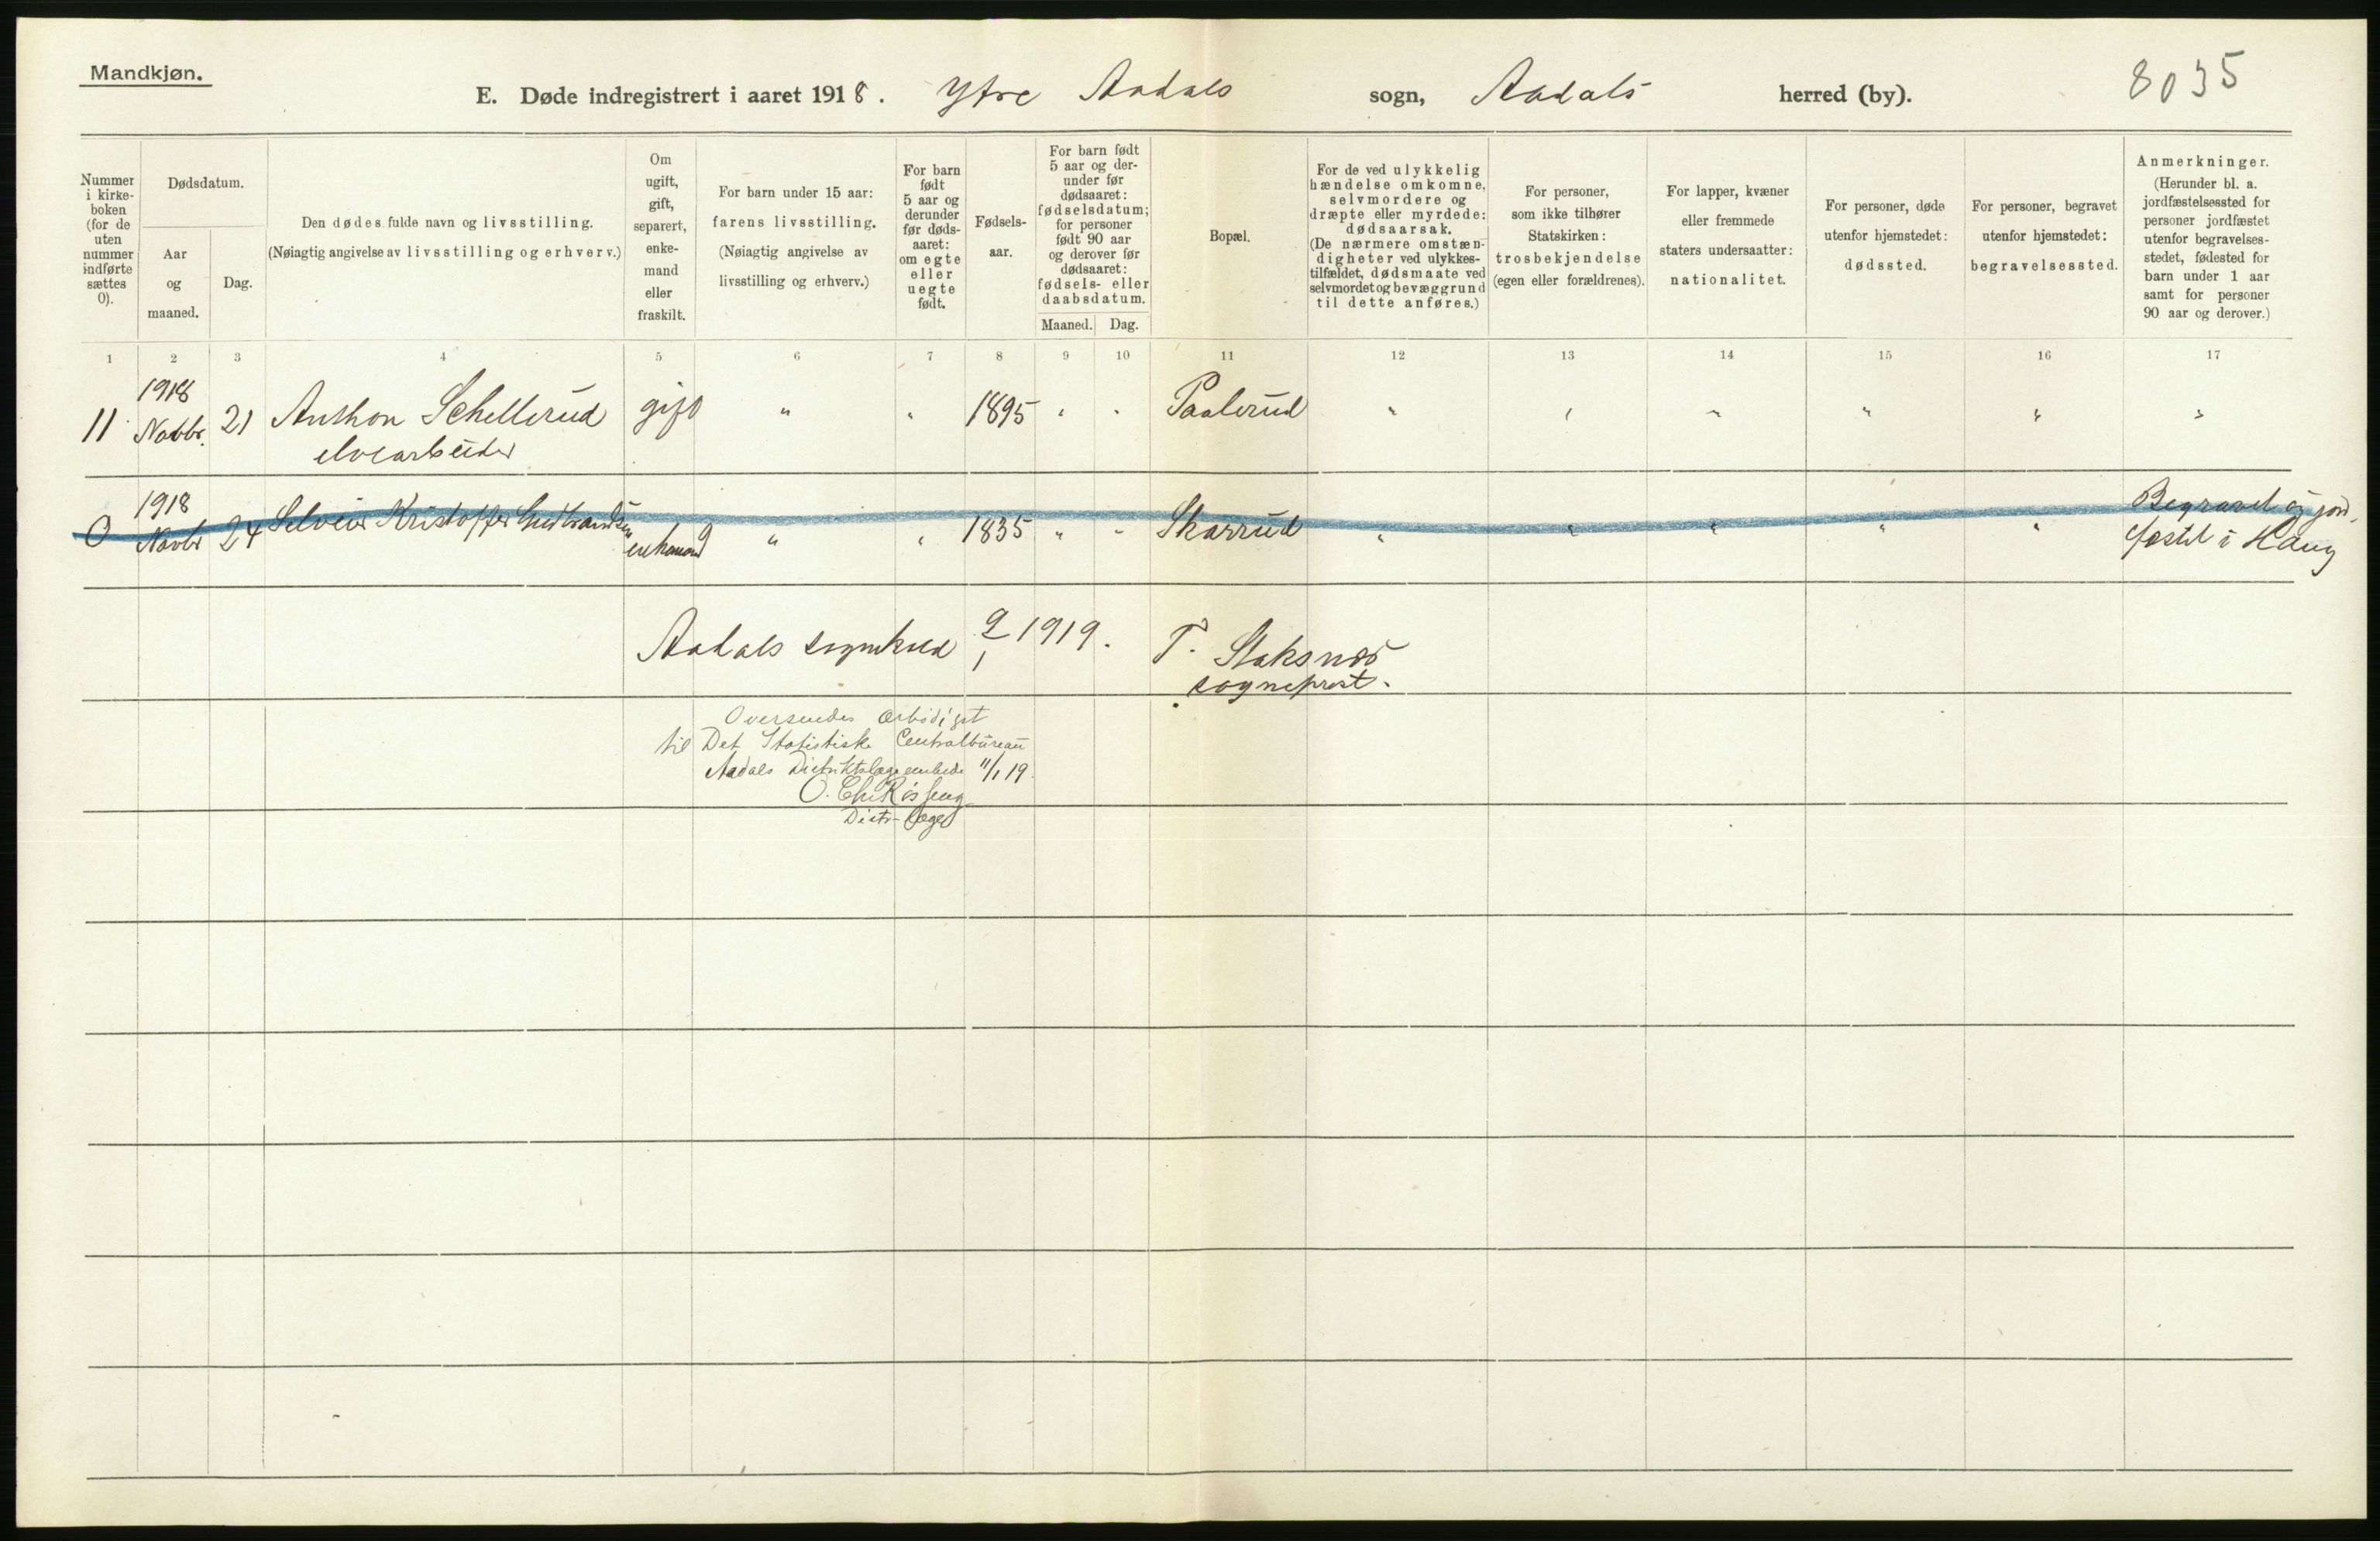 Mandkjøn.
E. Døde indregistrert i aaret 1918. Ytre Aadals sogn, Aadals herred (by). 8035
Nummer i kirke-boken (for de uten nummer indførte sættes 0).
Dødsdatum.
Aar og maaned.
Dag.
Den dødes fulde navn og livsstilling.
(Nøiagtig angivelse av livsstilling og erhverv.)
Om ugift, gift, separert, enke-mand eller fraskilt.
For barn under 15 aar:
farens livsstilling.
(Nøiagtig angivelse av livsstilling og erhverv.)
For barn født 5 aar og derunder før døds-aaret: om egte eller uegte født.
Fødsels-aar.
For barn født 5 aar og der-under før dødsaaret: fødselsdatum; for personer født 90 aar og derover før dødsaaret: fødsels- eller daabsdatum.
Maaned. Dag.
Bopæl.
For de ved ulykkelig hændelse omkomne, selvmordere og dræpte eller myrdede: dødsaarsak. (De nærmere omstæn-digheter ved ulykkes-tilfældet, dødsmaate ved selvmordet og bevæggrund til dette anføres.)
For personer, som ikke tilhører Statskirken: trosbekjendelse (egen eller forældrenes).
For lapper, kvæner eller fremmede staters undersaatter: nationalitet.
For personer, døde utenfor hjemstedet: dødssted.
For personer, begravet utenfor hjemstedet: begravelsessted.
Anmerkninger.
(Herunder bl. a. jordfæstelsessted for personer jordfæstet utenfor begravelses-stedet, fødested for barn under 1 aar samt for personer 90 aar og derover.)
1 2 3 4 5 6 7 8 9 10 11 12 13 14 15 16 17
1918
11 Novbr. 21 Anthon Schellerud gift " " 1895 " " Paalerud " " " " " "
elvearbeider
1918 Begravet og jord-
0 Novbr 24 Kristoffer Gudbrandsen enkemand " " 1835 " " Skarrud " " " " " fæstet i Haug
Aadals sognekald 9/1 1919. T. Staksnæs
sogneprest.
Oversendes ærbødigst
til Det Statistiske Centralbureau
Aadals Distriktslægeembede 11/1 19.
O. Chr.
Distr-læge